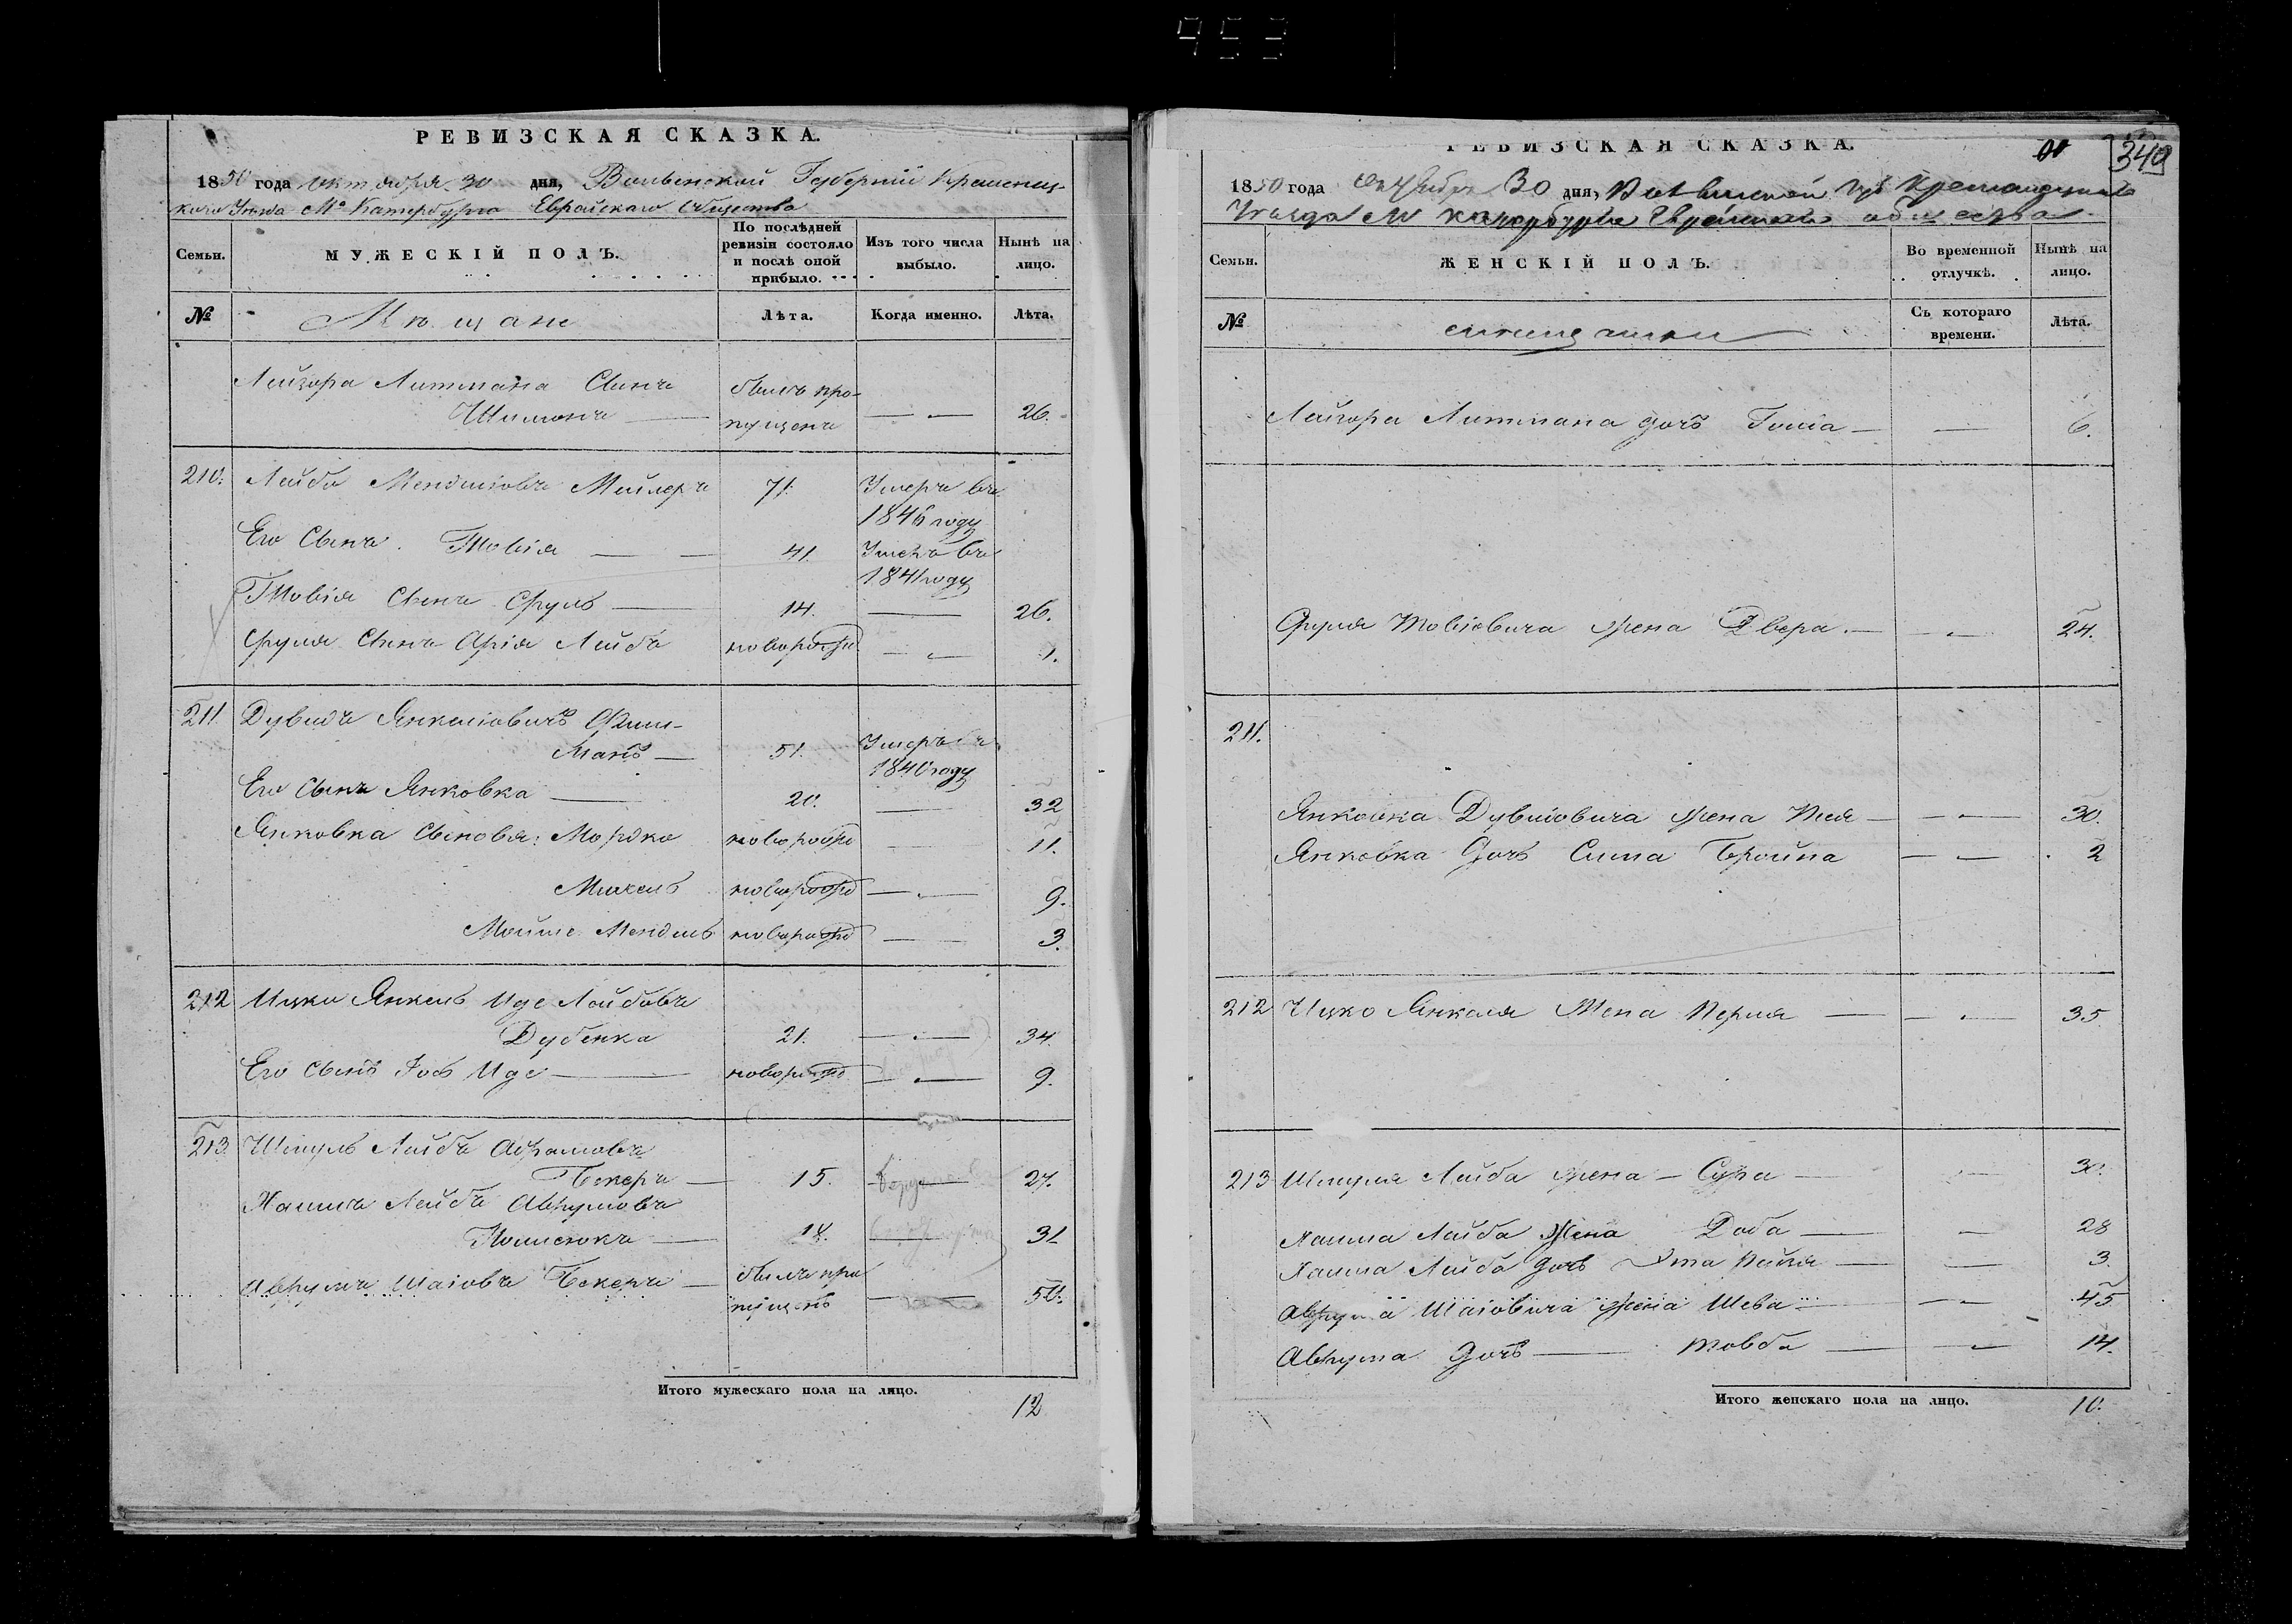 453
РЕВИЗСКАЯ СКАЗКА.
1850 года октября 30 дня, Волынской Губерніи Кременец-
каго Уезда Мо Катербурга Еврейскаго Общества
Семьи.
МУЖЕСКІЙ ПОЛЪ.
По послѣдней ревизіи состояло и послѣ оной прибыло.
Изъ того числа выбыло.
Нынѣ на лицо.
№
Мѣщане
Лѣта.
Когда именно.
Лѣта.
Лейзора Литмана Сынъ былъ про-
Шимонъ пущенъ 26.
210. Лейба Менділовъ 71. Умеръ въ
1846 году
Его Сынъ Товія 41. Умеръ въ
1841 году
Товія Сынъ Сруль 14. 26.
Сруля Сынъ Арія Лейбъ новорожд 1.
211 Дувидъ Янкеліовичъ Фиш-
манъ 51. Умеръ въ
1840 году
Его Сынъ Янковка 20. 32
Янковка Сыновья: Мордко новорожд 11.
Михель новорожд 9.
Мойше Мендель новорожд 3.
212 Ицко Янкель Иде Лейбовъ
Дубенка 21. 34.
Его Сынъ Іось Иде новорожд 9.
213 Шмуль Лейбъ Абрамовъ
Бекеръ 15. 27.
Хаимъ Лейбъ Аврумовъ
18. 31
Аврумъ Шаіовъ Бекеръ былъ про
пущенъ 50.
Итого мужескаго пола на лицо.
12
РЕВИЗСКАЯ СКАЗКА.
349
1850 года Октября 30 дня, Волынской Губ Кременецкаго
Уезда М Катербурга Еврейскаго общества
Семьи.
ЖЕНСКІЙ ПОЛЪ.
Во временной отлучкѣ.
Нынѣ на лицо.
№
мещанки
Съ котораго времени.
Лѣта.
Лейзора Литмана дочь 6.
Сруля Товіевича жена Двера 24.
211.
Янковка Дувидовича жена 30.
Янковка дочь Сима Бройна 2
212 Ицко Янкеля Жена Перля 35
213 Шмуля Лейба жена Сура 30.
Хаима Лейба Жена Доба 28
Хаима Лейба дочь 3.
Аврума Шаіовича жена Шева 45
Аврума дочь Товба 14.
Итого женскаго пола на лицо.
10.